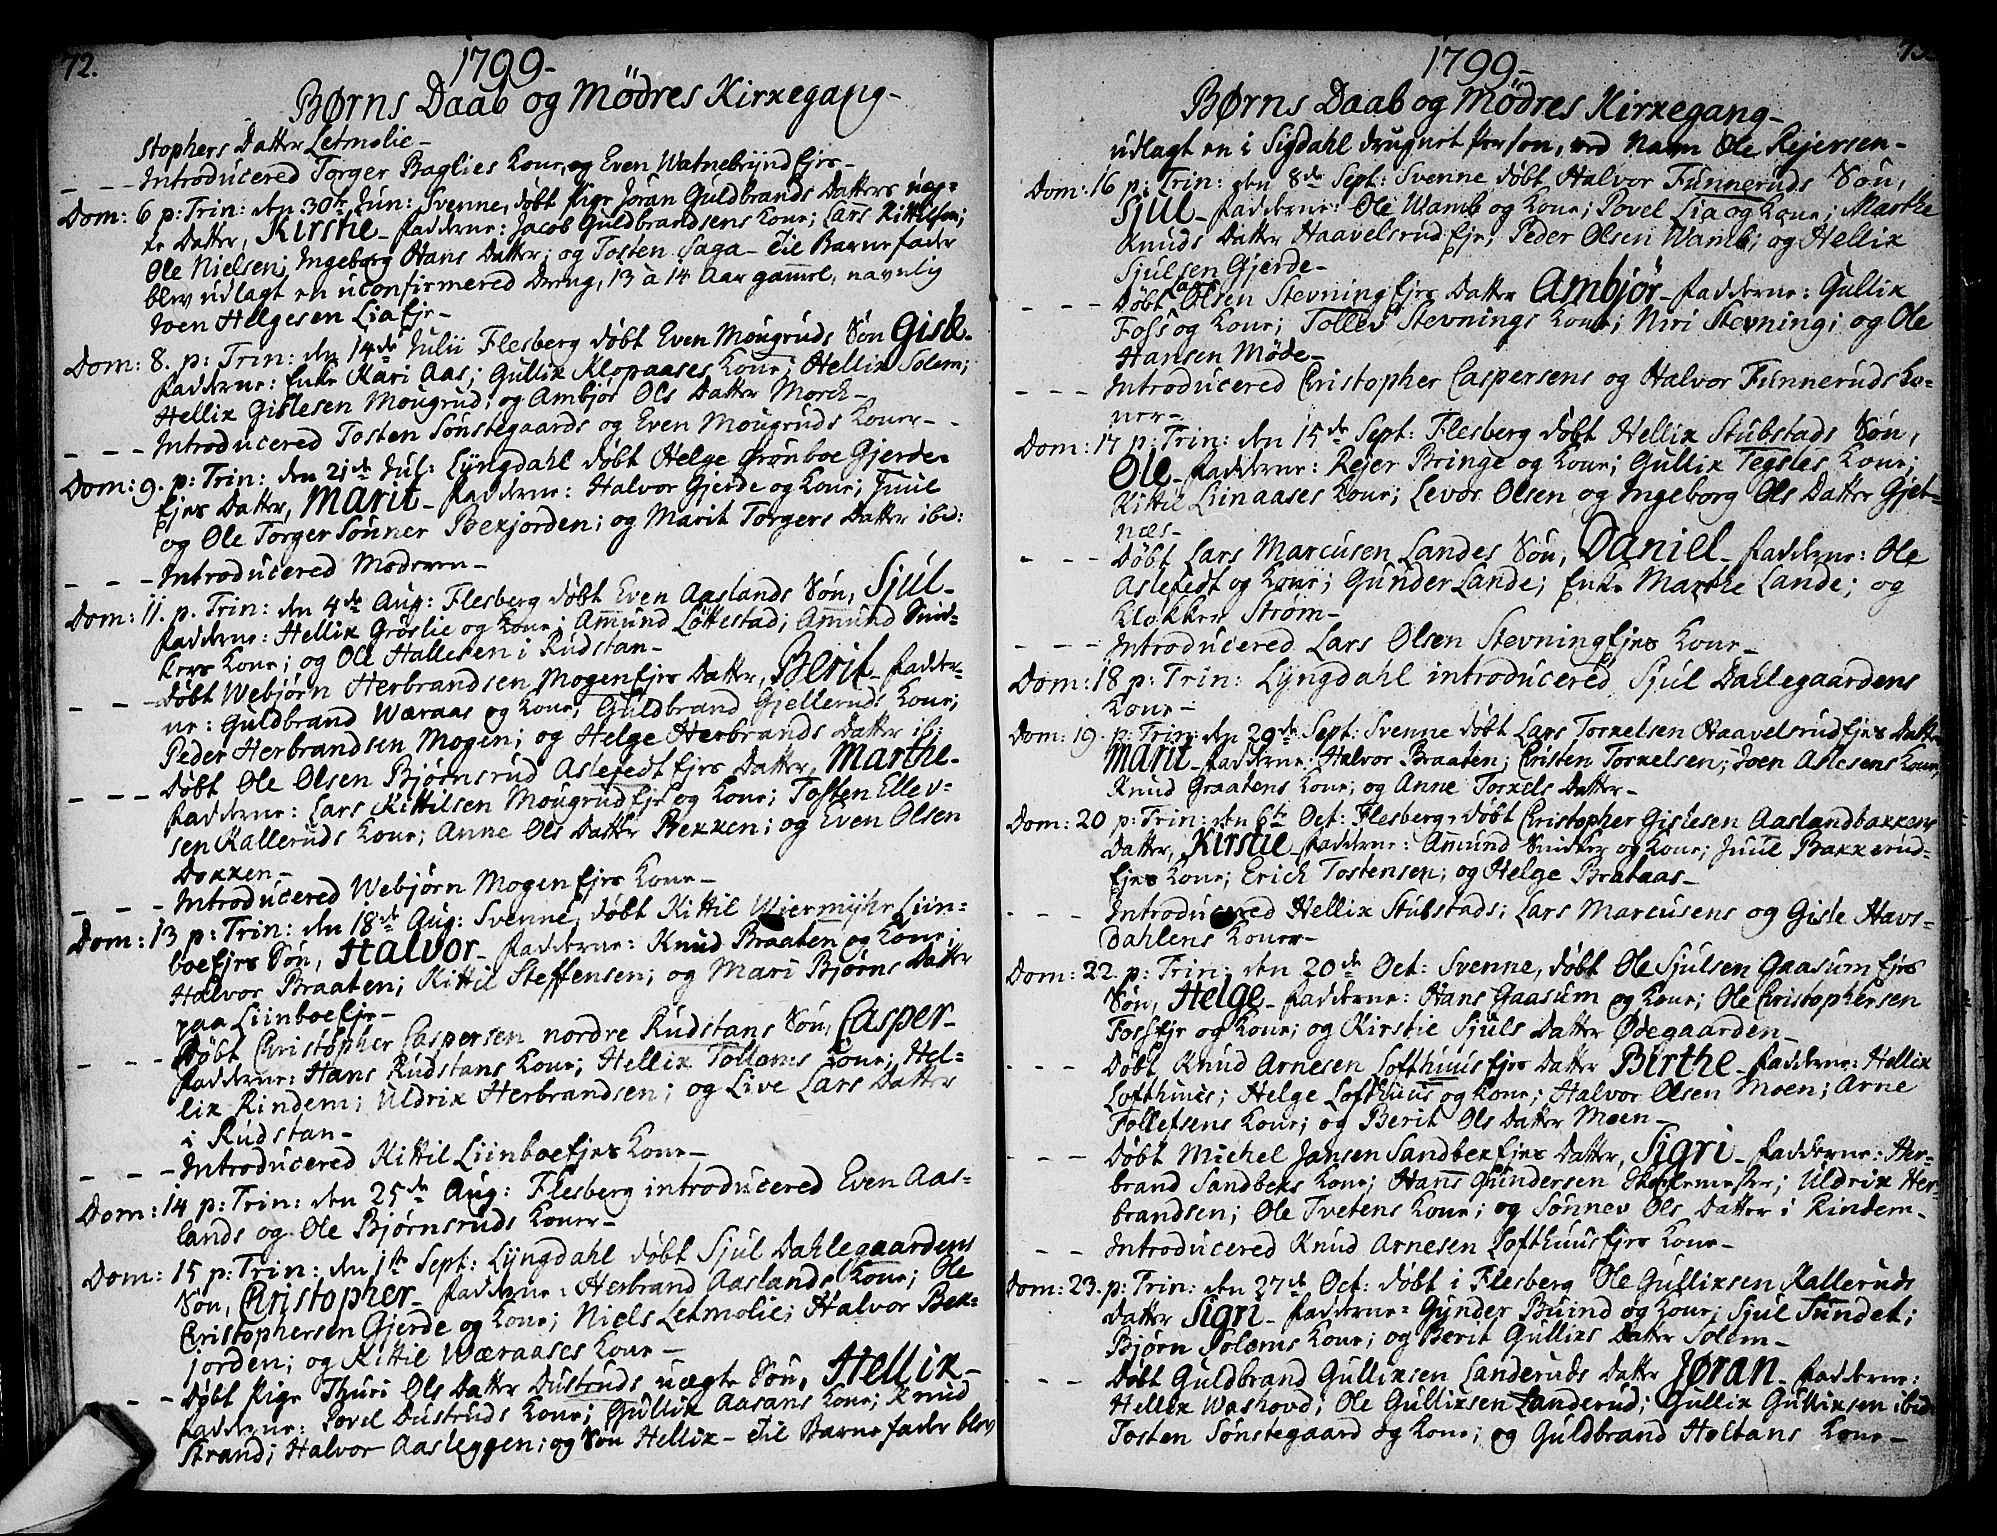 72.
1799-
Børns Daab og Mödres Kirkegang-
Stophers Datter Letmolie-
- - - Introducered Torger Baglies Kone, og Even Watnebryndejes-
Dom: 6 p: Trin: den 30te Jun: Svenne, döbt Pige Jöran Guldbrands Datters uæg-
te Datter, Kirstie- Fadderne: Jacob Guldbrandsens Kone; Lars Kittilsen;
Ole Nielsen; Ingeborg Hans Datter; og Tosten Saga- Til Barnefader
blev udlagt en uconfirmered Dreng, 13 à 14 Aar gamel, navnlig
Joen Helgesen Lia Eje-
Dom: 8. p: Trin: den 14de Julii Flesberg döbt Even Mougruds Sön Gisle-
Fadderne: Enke Kari Aas; Gullix Klopaases Kone; Hellix Solem;
Hellix Gislesen Mougrud; og Ambjör Ols Datter Morck-
- - - Introducered Tosten Sönstegaards og Even Mougruds Koner-
Dom: 9. p: Trin: den 21de Jul: Lyngdahl döbt Helge Grönboe Gjerde-
Ejes Datter, Marit- Fadderne: Halvor Gjerde og Kone; Juul
og Ole Torger Sönner Bekjorden; og Marit Torgers Datter ibid:
- - - Introducered Moderen-
Dom: 11. p: Trin: den 4de Aug: Flesberg döbt Even Aaslands Sön, Sjul-
Fadderne: Hellix Gröslie og Kone; Amund Löttestad; Amund Snid-
kers Kone; og Ole Hallesen i Rudstan-
- - - Döbt Webjørn Herbrandsen Mogen Ejes Datter, Berit- Fadder-
ne: Guldbrand Wæraas og Kone; Guldbrand Gjelleruds Kone;
Peder Herbrandsen Mogen; og Helge Herbrands Datter ib:
- - - Döbt Ole Olsen Bjørnsrud Aslefedt Ejes Datter, Marthe-
Fadderne: Lars Kittilsen Mougrud Eje og Kone; Tosten Ellev-
sen Kalleruds Kone; Anne Ols Datter Bekken; og Even Olsen
Dokken-
- - - Introducered Webjørn Mogen Ejes Kone-
Dom: 13 p: Trin: den 18de Aug: Svenne, döbt Kittil Wiermyhr Liin-
boe Ejes Sön, Halvor- Fadderne: Knud Braaten og Kone;
Halvor Braaten; Kittil Steffensen; og Mari Bjørns Datter
paa Liinboe Eje-
- - - Døbt Christopher Caspersen nordre Rudstans Sön, Casper-
Fadderne: Hans Rudstans Kone; Hellix Tolloms Kone; Hel-
lix Rindem; Uldrix Herbrandsen; og Live Lars Datter
i Rudstan-
- - - Introducered Kittil Liinboe Ejes Kone-
Dom: 14 p: Trin: den 25de Aug: Flesberg introducered Even Aas-
lands og Ole Bjørnsruds Koner-
Dom: 15 p: Trin: den 1ste Sept: Lyngdahl döbt Sjul Dahlegaardens
Sön, Christopher- Fadderne: Herbrand Aaslands Kone; Ole
Christophersen Gjerde og Kone; Niels Letmolie; Halvor Bek-
jorden; og Kittil Wæraases Kone-
- - Döbt Pige Thuri Ols Datter Dustruds uægte Sön, Hellix-
Fadderne: Povel Dustruds Kone; Gullix Aasans Kone; Knud
Strand; Halvor Aasleggen; og Sön Hellix- Til Barnefader blev
1799-
Børns Daab og Mödres Kirkegang-
udlagt en i Sigdahl drugnet Person, ved Navn Ole Rejersen-
Dom: 16 p: Trin: den 8de Sept: Svenne döbt Halvor Funneruds Sön,
Sjul- Fadderne: Ole Wamb og Kone; Povel Lia og Kone; Marthe
Knuds Datter Haavelsrud Eje; Peder Olsen Wamb; og Hellix
Sjulsen Gjerde-
- - - Döbt Lars Olsen Stevning Ejes Datter Ambjör- Fadderne: Gullix
Foss og Kone; Tollev Stevnings Kone; Niri Stevning; og Ole
Hansen Möde-
- - - Introducered Christopher Caspersens og Halvor Funneruds Ko-
ner-
Dom: 17 p: Trin: den 15de Sept: Flesberg döbt Hellix Stubstads Sön,
Ole- Fadderne: Rejer Bringe og Kone; Gullix Tegstes Kone;
Kittil Liinaases Kone; Levor Olsen og Ingeborg Ols Datter Gjet-
næs-
- - - Döbt Lars Marcusen Landes Sön, Daniel- Fadderne: Ole
Aslefedt og Kone; Gunder Lande; Enke Marthe Lande; og
Klokker Ström-
- - - Introducered Lars Olsen Stevning Ejes Kone-
Dom: 18 p: Trin: Lyngdahl introducered Sjul Dahlegaardens
Kone-
Dom: 19. p: Trin: den 29de Sept: Svenne döbt Lars Torkelsen Haavelsrud Ejes Datter
Marit- Fadderne: Halvor Braaten; Christen Torkelsen; Joen Aslesens Kone;
Knud Graatens Kone; og Anne Torkels Datter-
Dom: 20 p: Trin: den 6te Oct: Flesberg, döbt Christopher Gislesen Aaslandbakkens
Datter, Kirstie- Fadderne: Amund Snidker og Kone; Juul Bakkerud-
Ejes Kone; Erich Tostensen; og Helge Brataas-
- - - Introducered Hellix Stubstads; Lars Marcusens og Gisle Havs-
dahlens Koner-
Dom: 22. p: Trin: den 20de Oct: Svenne, döbt Ole Sjulsen Gaasum Ejes
Sön, Helge- Fadderne: Hans Gaasum og Kone; Ole Christophersen
Foss Eje og Kone; og Kirstie Sjuls Datter Ødegaarden-
- - - Döbt Knud Arnesen Lofthuus Ejes Datter Birthe- Fadderne: Hellix
Lofthuus; Helge Lofthuus og Kone; Halvor Olsen Moen; Arne
Tollefsens Kone; og Berit Ols Datter Moen-
- - - Döbt Michel Jansen Sandbek Ejes Datter, Sigri- Fadderne: Her-
brand Sandbeks Kone; Hans Gundersen; Uldrix Her-
brandsen; Ole Tvetens Kone; og Sönnev Ols Datter i Rindem-
- - Introducered Knud Arnesen Lofthuus Ejes Kone-
Dom: 23. p: Trin: den 27de Oct: döbt i Flesberg Ole Gullixsen Kalleruds
Datter Sigri- Fadderne: Gunder Buind og Kone; Sjul Sundet;
Bjørn Solems Kone; og Berit Gullixs Datter Solem-
- - - Döbt Guldbrand Gullixsen Landeruds Datter Jøran- Fadderne:
Hellix Washovd; Ole Gullixsen Landerud; Gullix Gullixsen ibid:
Tosten Sönstegaard og Kone; og Guldbrand Holtans Kone-